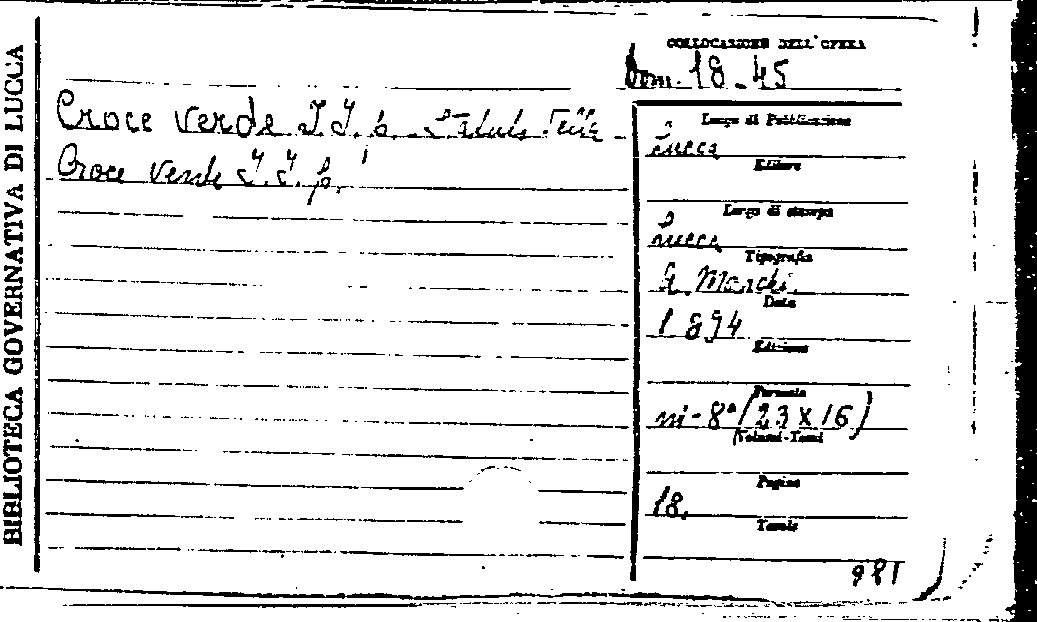 BIBLIOTECA GOVERNATIVA DI LUCCA
COLLOCAZIONE DELL'OPERA
Dom. 18-45
Croce verde
Croce verde
Luogo di Pubblicazione
Lucca
Editore
Luogo di stampa
Lucca
Tipografia
G. Marchi.
Data
1894
Edizione
Formato
in-8° (23 x 16)
Volumi-Tomi
Pagine
18.
Tavole
981